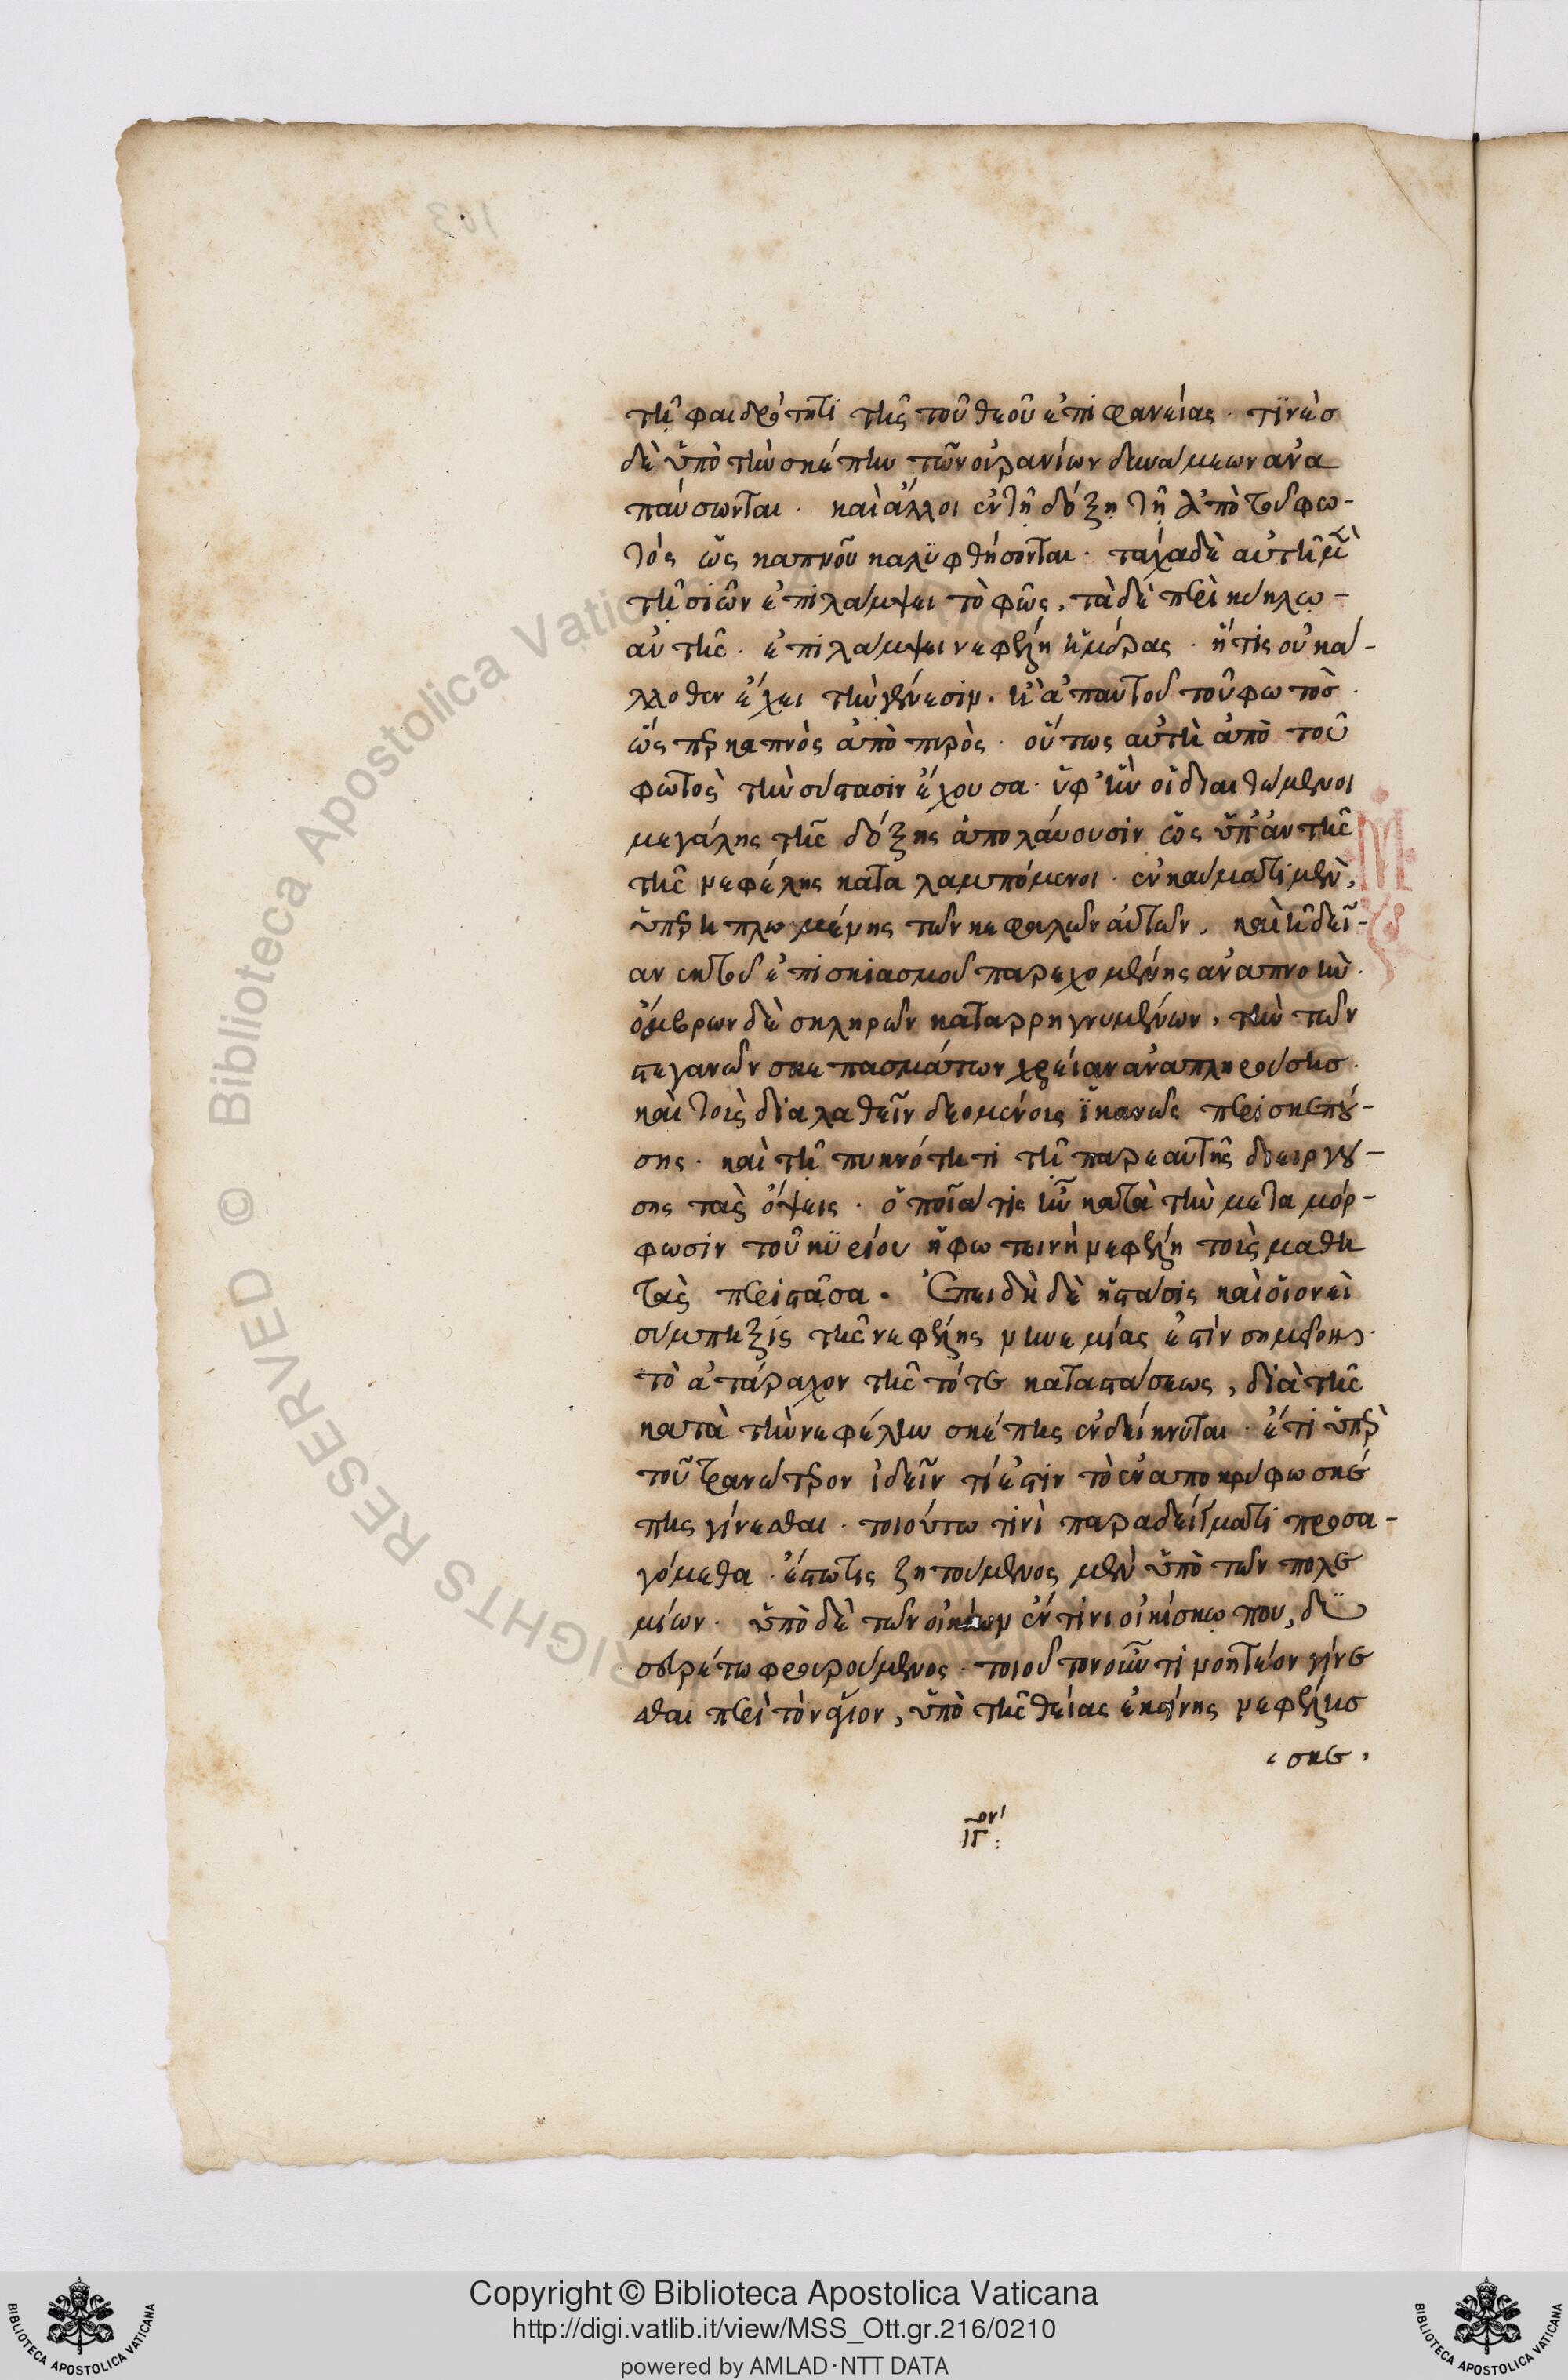 τῇ φαιδρότητι τῆς τοῦ θεοῦ ἐπιφανείας · τινὲσ
δὲ ὑπὸ τὴν σκέπην τῶν οὐρανίων δυνάμεων ἀνα
παύσωνται · καὶ ἄλλοι ἐν τῇ δόξῃ τῇ ἀπὸ τοῦ φω-
τὸς ὡς καπνοῦ καλυφθήσονται · τάχα δὲ αὐτῇ μὲν
τῇ σιὼν ἐπιλάμψει τὸ φῶς, τὰ δὲ περὶ κύκλῳ
αὐτῆς · ἐπιλάμψει νεφέλη ἡμέρας · ἥτις οὐκ ἀ-
λλοθεν ἔχει τὴν γένεσιν · ἢ ἀπ' αὐτοῦ τοῦ φωτὸσ ·
ὥσπερ καπνὸς ἀπὸ πυρὸς · οὕτως αὐτὴ ἀπὸ τοῦ
φωτὸς τὴν σύστασιν ἔχουσα · ὑφ' ἣν οἱ διαιτώμενοι
μεγάλης τῆς δόξης ἀπολάυουσιν ὡς ὑπ' ἀυτῆς
τῆς νεφέλης καταλαμπόμενοι · ἐν καύματι μὲν,
ὑπερηπλωμένης τῶν κεφαλῶν αὐτῶν, καὶ ἡδεῖ-
αν ἐκ τοῦ ἐπισκιασμοῦ παρεχομένης ἀναπνοὴν ·
ὄμβρων δὲ σκληρῶν καταρρηγνυμένων, τὴν τῶν
στεγανῶν σκεπασμάτων χρείαν ἀναπληρούσησ ·
καὶ τοῖς διαλαθεῖν δεομένοις ἱκανῶς περισκεπού-
σης · καὶ τῇ πυκνότητι τῇ παρ' ἑαυτῆς διειργού-
σης τὰς ὄψεις · ὁποῖα τις ἦν κατὰ τὴν μεταμόρ-
φωσιν τοῦ κυρίου ἡ φωτεινὴ νεφέλη τοῖς μαθη
τὰς περιστᾶσα · Ἐπειδὴ δὲ ἡ στάσις καὶ οἱονεὶ
σύμπηξις τῆς νεφέλης νηνεμίας ἐστὶν σημεῖον ·
τὸ ἀτάραχον τῆς τότε καταστάσεως, διὰ τῆς
κατὰ τὴν νεφέλην σκέπης ἐνδείκνυται · ἔτι ὑπὲρ
τοῦ τρανώτερον ἰδεῖν τί ἐστιν τὸ ἐν ἀποκρύφω σκέ
πης γίνεσθαι · τοιούτω τινὶ παραδείγματι προσα-
γόμεθα · ἔστω τις ζητούμενος μὲν ὑπὸ τῶν πολε
μίων · ὑπὸ δὲ τῶν οἰκείων ἔν τινι οἰκίσκω που, δυ
σευρέτω φρουρούμενος · τοιοῦτον οὖν τι νοητέον γίνε
σθαι περὶ τὸν ἅγιον, ὑπὸ τῆς θείας ἐκείνης νεφέλησ
σκε
ιγον